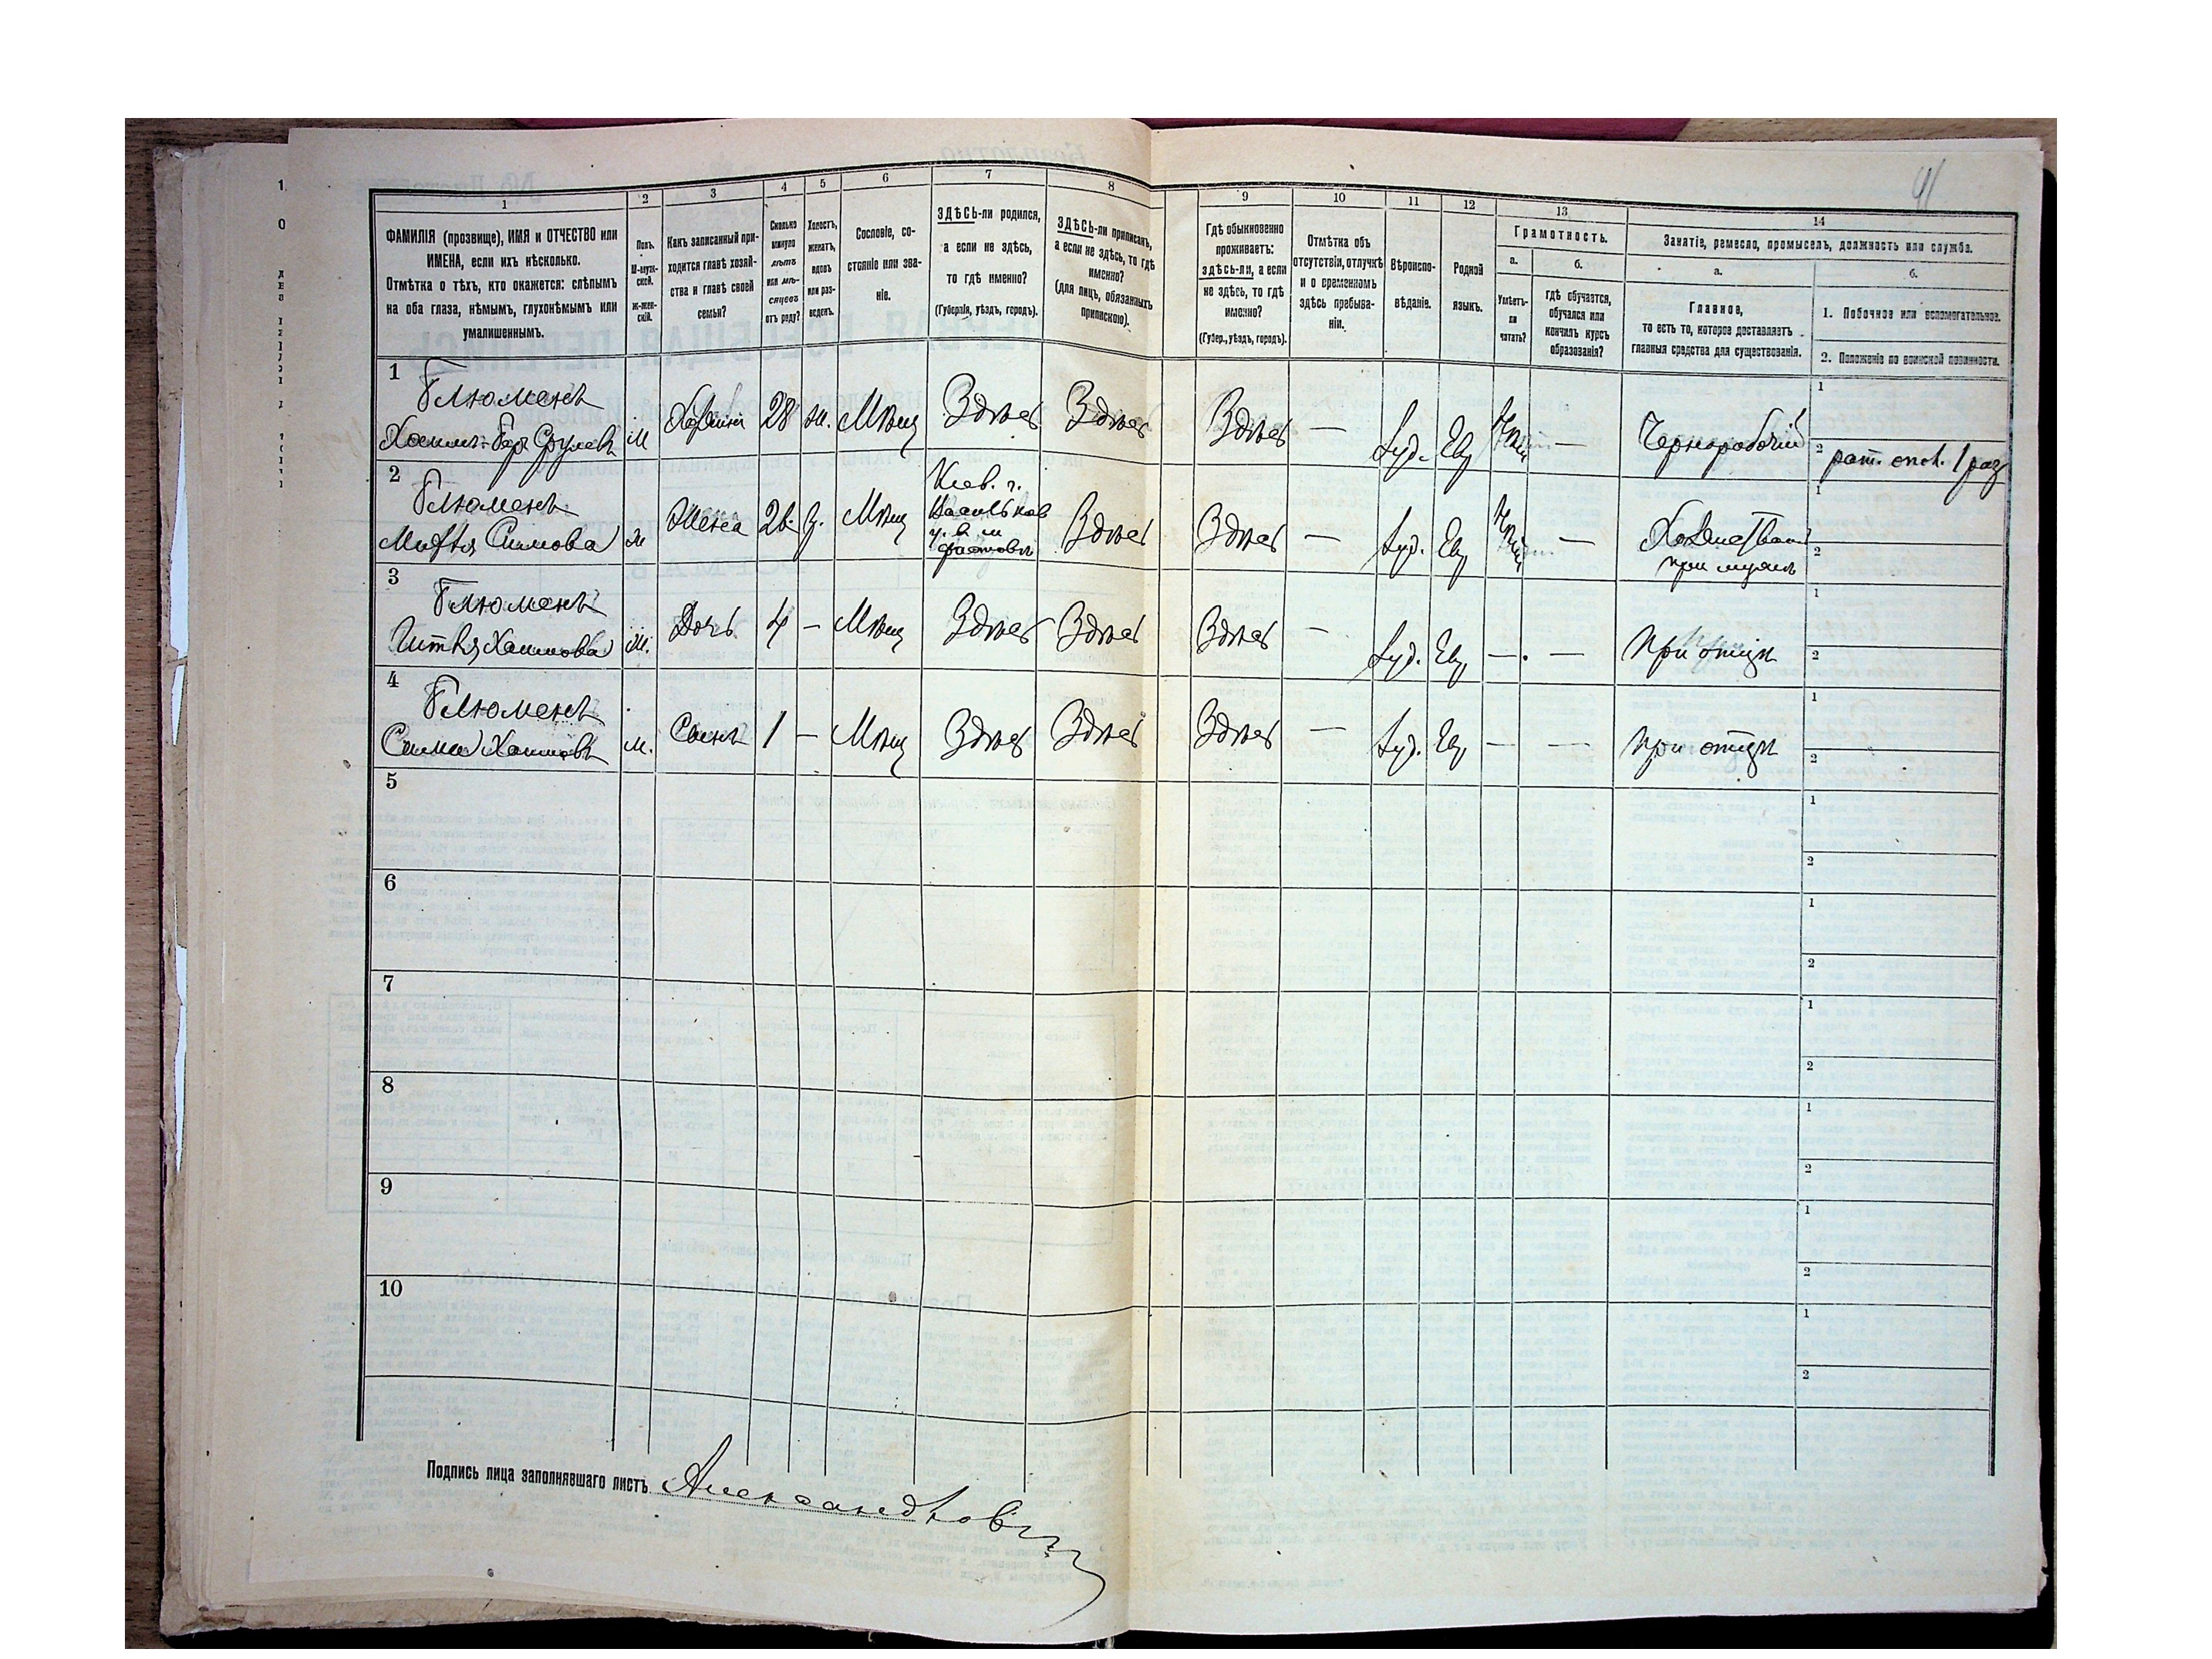 41
1
2
3
4
5
6
7
8
9
10
11
12
13
14
ФАМИЛІЯ (прозвище), ИМЯ и ОТЧЕСТВО или
ИМЕНА, если ихъ нѣсколько.
Отмѣтка о тѣхъ, кто окажется: слѣпымъ
на оба глаза, нѣмымъ, глухонѣмымъ или
умалишеннымъ.
Полъ.
М-муж-
ской.
ж-жен-
скій.
Какъ записанный при-
ходится главѣ хозяй-
ства и главѣ своей
семьи?
Сколько
минуло
лѣтъ
или мѣ-
сяцевъ
отъ роду?
Холостъ,
женатъ,
вдовъ
или раз-
веденъ.
Сословіе, со-
стояніе или зва-
ніе.
ЗДѢСЬ-ли родился,
а если не здѣсь,
то гдѣ именно?
(Губернія, уѣздъ, городъ).
ЗДѢСЬ-ли приписанъ,
а если не здѣсь, то гдѣ
именно?
(для лицъ, обязанныхъ
припискою).
Гдѣ обыкновенно
проживаетъ:
здѣсь-ли, а если
не здѣсь, то гдѣ
именно?
(Губер., уѣздъ, городъ).
Отмѣтка объ
отсутствіи, отлучкѣ
и о временномъ
здѣсь пребыва-
ніи.
Вѣроиспо-
вѣданіе.
Родной
языкъ.
Грамотность.
а.
Умѣетъ-
ли
читать?
б.
гдѣ обучается,
обучался или
кончилъ курсъ
образованія?
Занятіе, ремесло, промыселъ, должность или служба.
а.
Главное,
то есть то, которое доставляетъ
главныя средства для существованія.
б.
1. Побочное или вспомогательное.
2. Положеніе по воинской повинности.
1
Блюменъ
Хаимъ-Бер Срулевъ
м
Хозяинъ
28
ж.
Мѣщ
Здѣсь
Здѣсь
Здѣсь
—
Іуд.
Ев
—
Чернорабочій
1
2 рат. опол. 1 раз
2
Блюменъ
Симова
Жена
26
з.
Мѣщ
Кіев. г.
Васильков
у. в м
Фастовъ
Здѣсь
Здѣсь
—
Іуд.
Ев
—
Хозяйствен
при мужѣ
1
2
3
Блюменъ
Гитля Хаимова
Дочь
4
—
Мѣщ
Здѣсь
Здѣсь
Здѣсь
—
Іуд.
Ев
—
—
при отцѣ
1
2
4
Блюменъ
Симха Хаимовъ
м.
Сынъ
1
—
Мѣщ
Здѣсь
Здѣсь
Здѣсь
—
Іуд.
Ев
—
—
при отцѣ
1
2
5
1
2
6
1
2
7
1
2
8
1
2
9
1
2
10
1
2
Подпись лица заполнявшаго листъ